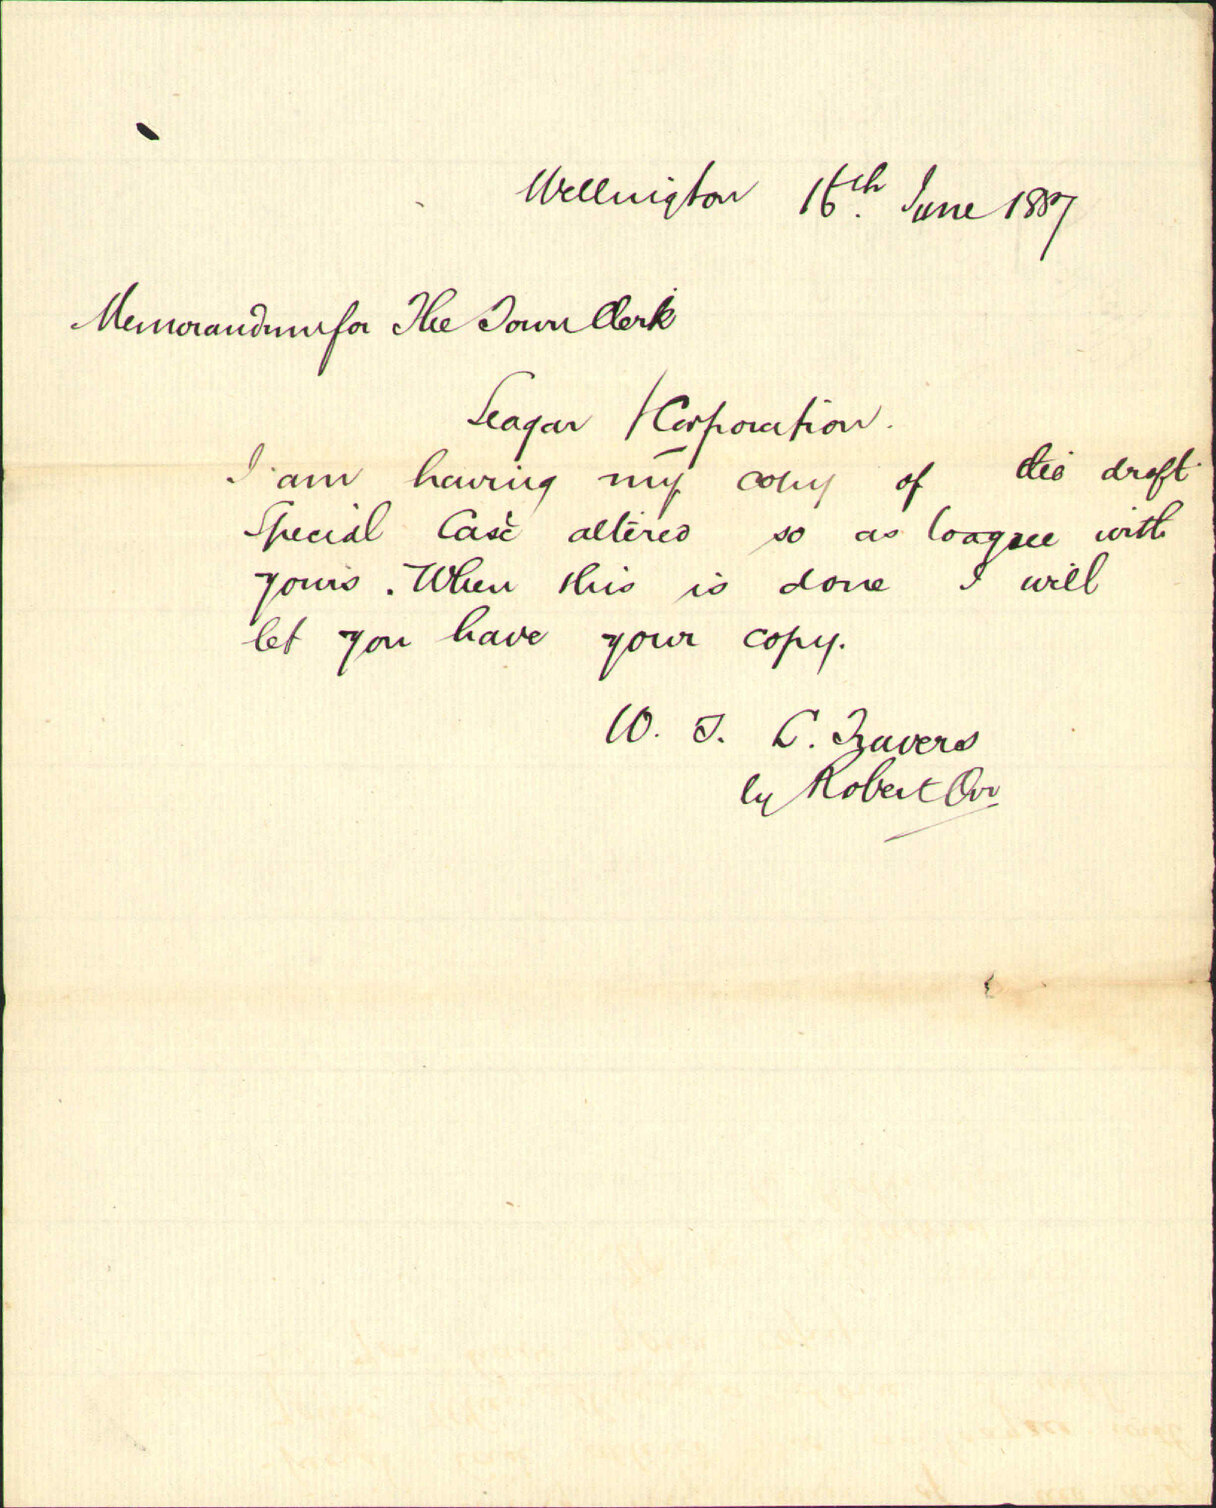 Wellington 16th. June 1887
Memorandum for The Town Clerk
Seagar / Corporation.
I am having my copy of the draft
Special Case altered so as to agree with
yours. When this is done I will
let you have your copy.
W. T. L. Travers
by Robert Orr